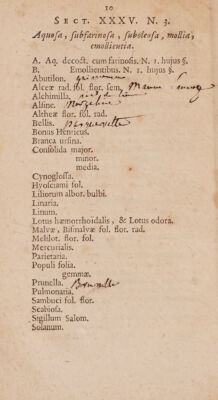 10
SECT. XXXV. N. 3.
Aquosa, subfarinosa, suboleosa, mollia,
emollientia.
A. Aq. decoct. cum farinosis. N. 1. hujus §.
B. Emollientibus. N. 1. hujus §.
Abutilon.
Alceæ rad. fol. flor. sem.
Alchimilla.
Alsine.
Altheæ flor. fol. rad.
Bellis.
Bonus Henricus.
Branca ursina.
Consolida major.
minor.
media.
Cynoglossa.
Hyosciami fol.
Liliorum albor. bulbi.
Linaria.
Linum.
Lotus hæmorrhoidalis, & Lotus odora.
Malvæ, Bismalvæ fol. flor. rad.
Melilot. flor. fol.
Mercurialis.
Parietaria.
Populi folia.
gemmæ.
Prunella. Brunelle
Pulmonaria.
Sambuci fol. flor.
Scabiosa.
Sigillum Salom.
Solanum.